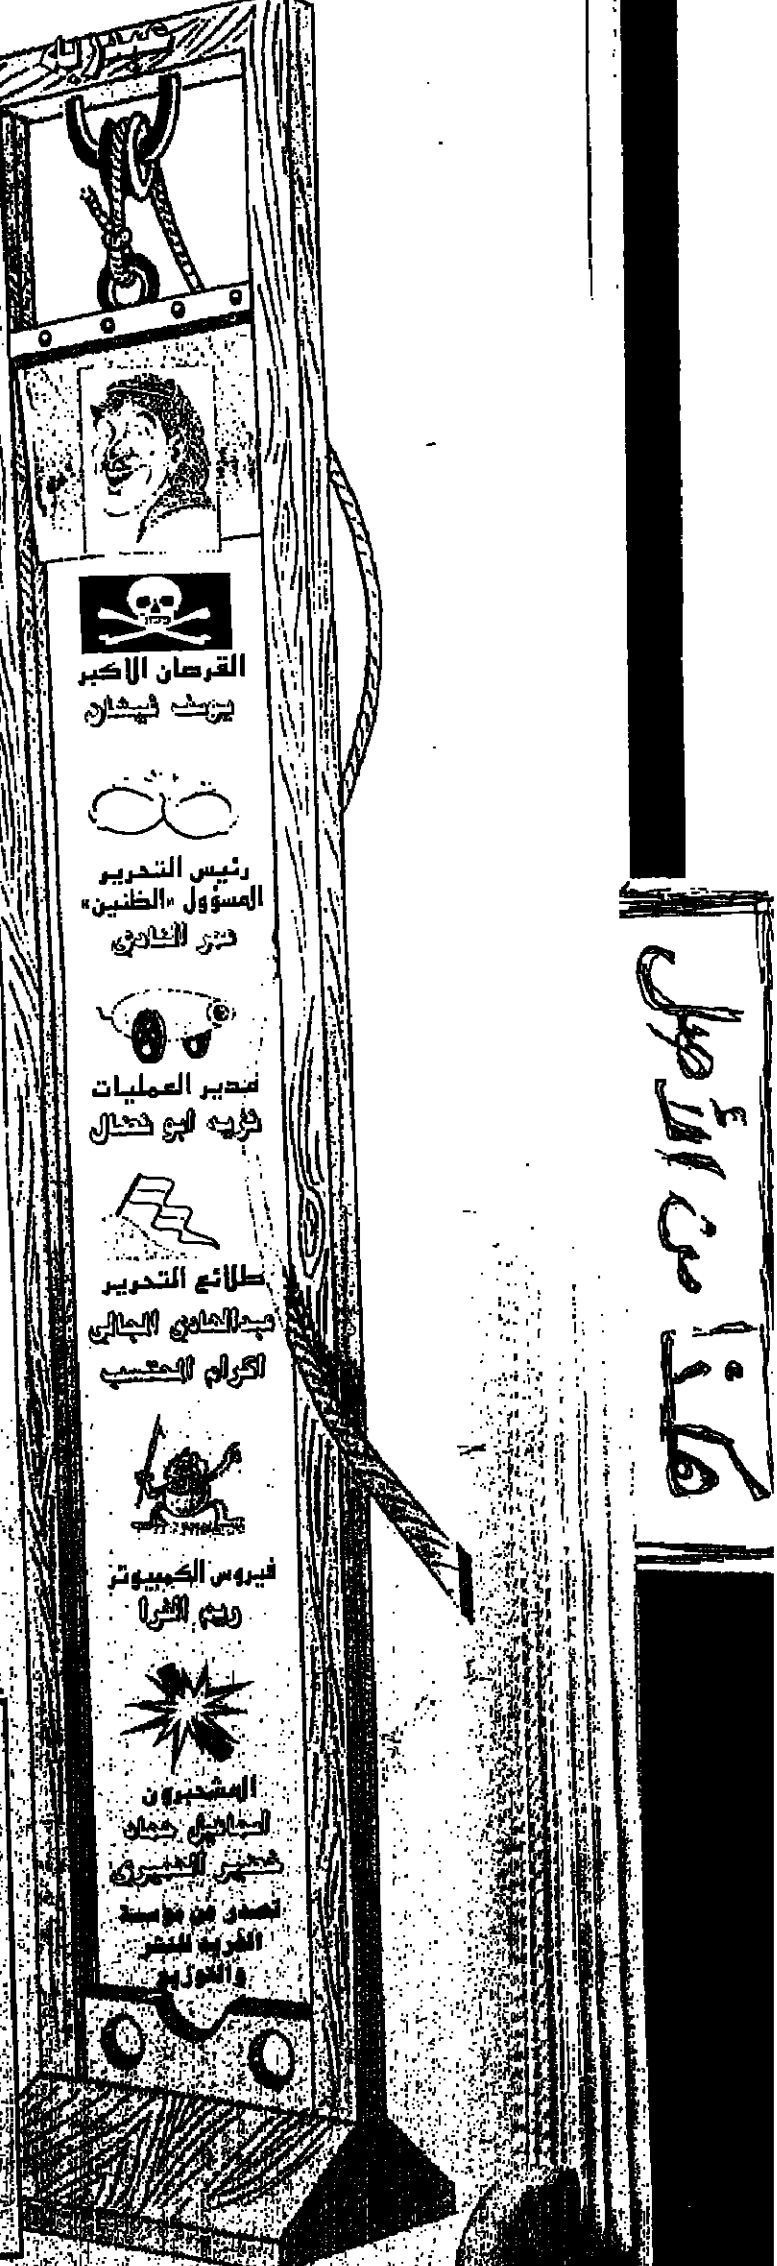 عبدربه
القرصان الاكبر
يوسف غيشان
رئيس التحرير
المسؤول «الظنين»
مدير العمليات
نزيه ابو نضال
طلائع التحرير
عبدالهادي المجالي
اكرام المحتسب
فيروس الكمبيوتر
ريم الفرا
المشحبرون
اسماعيل حماد
خضير الحميري
تصدر عن مؤسسة
للنشر
والتوزيع
هكذا من الأصل